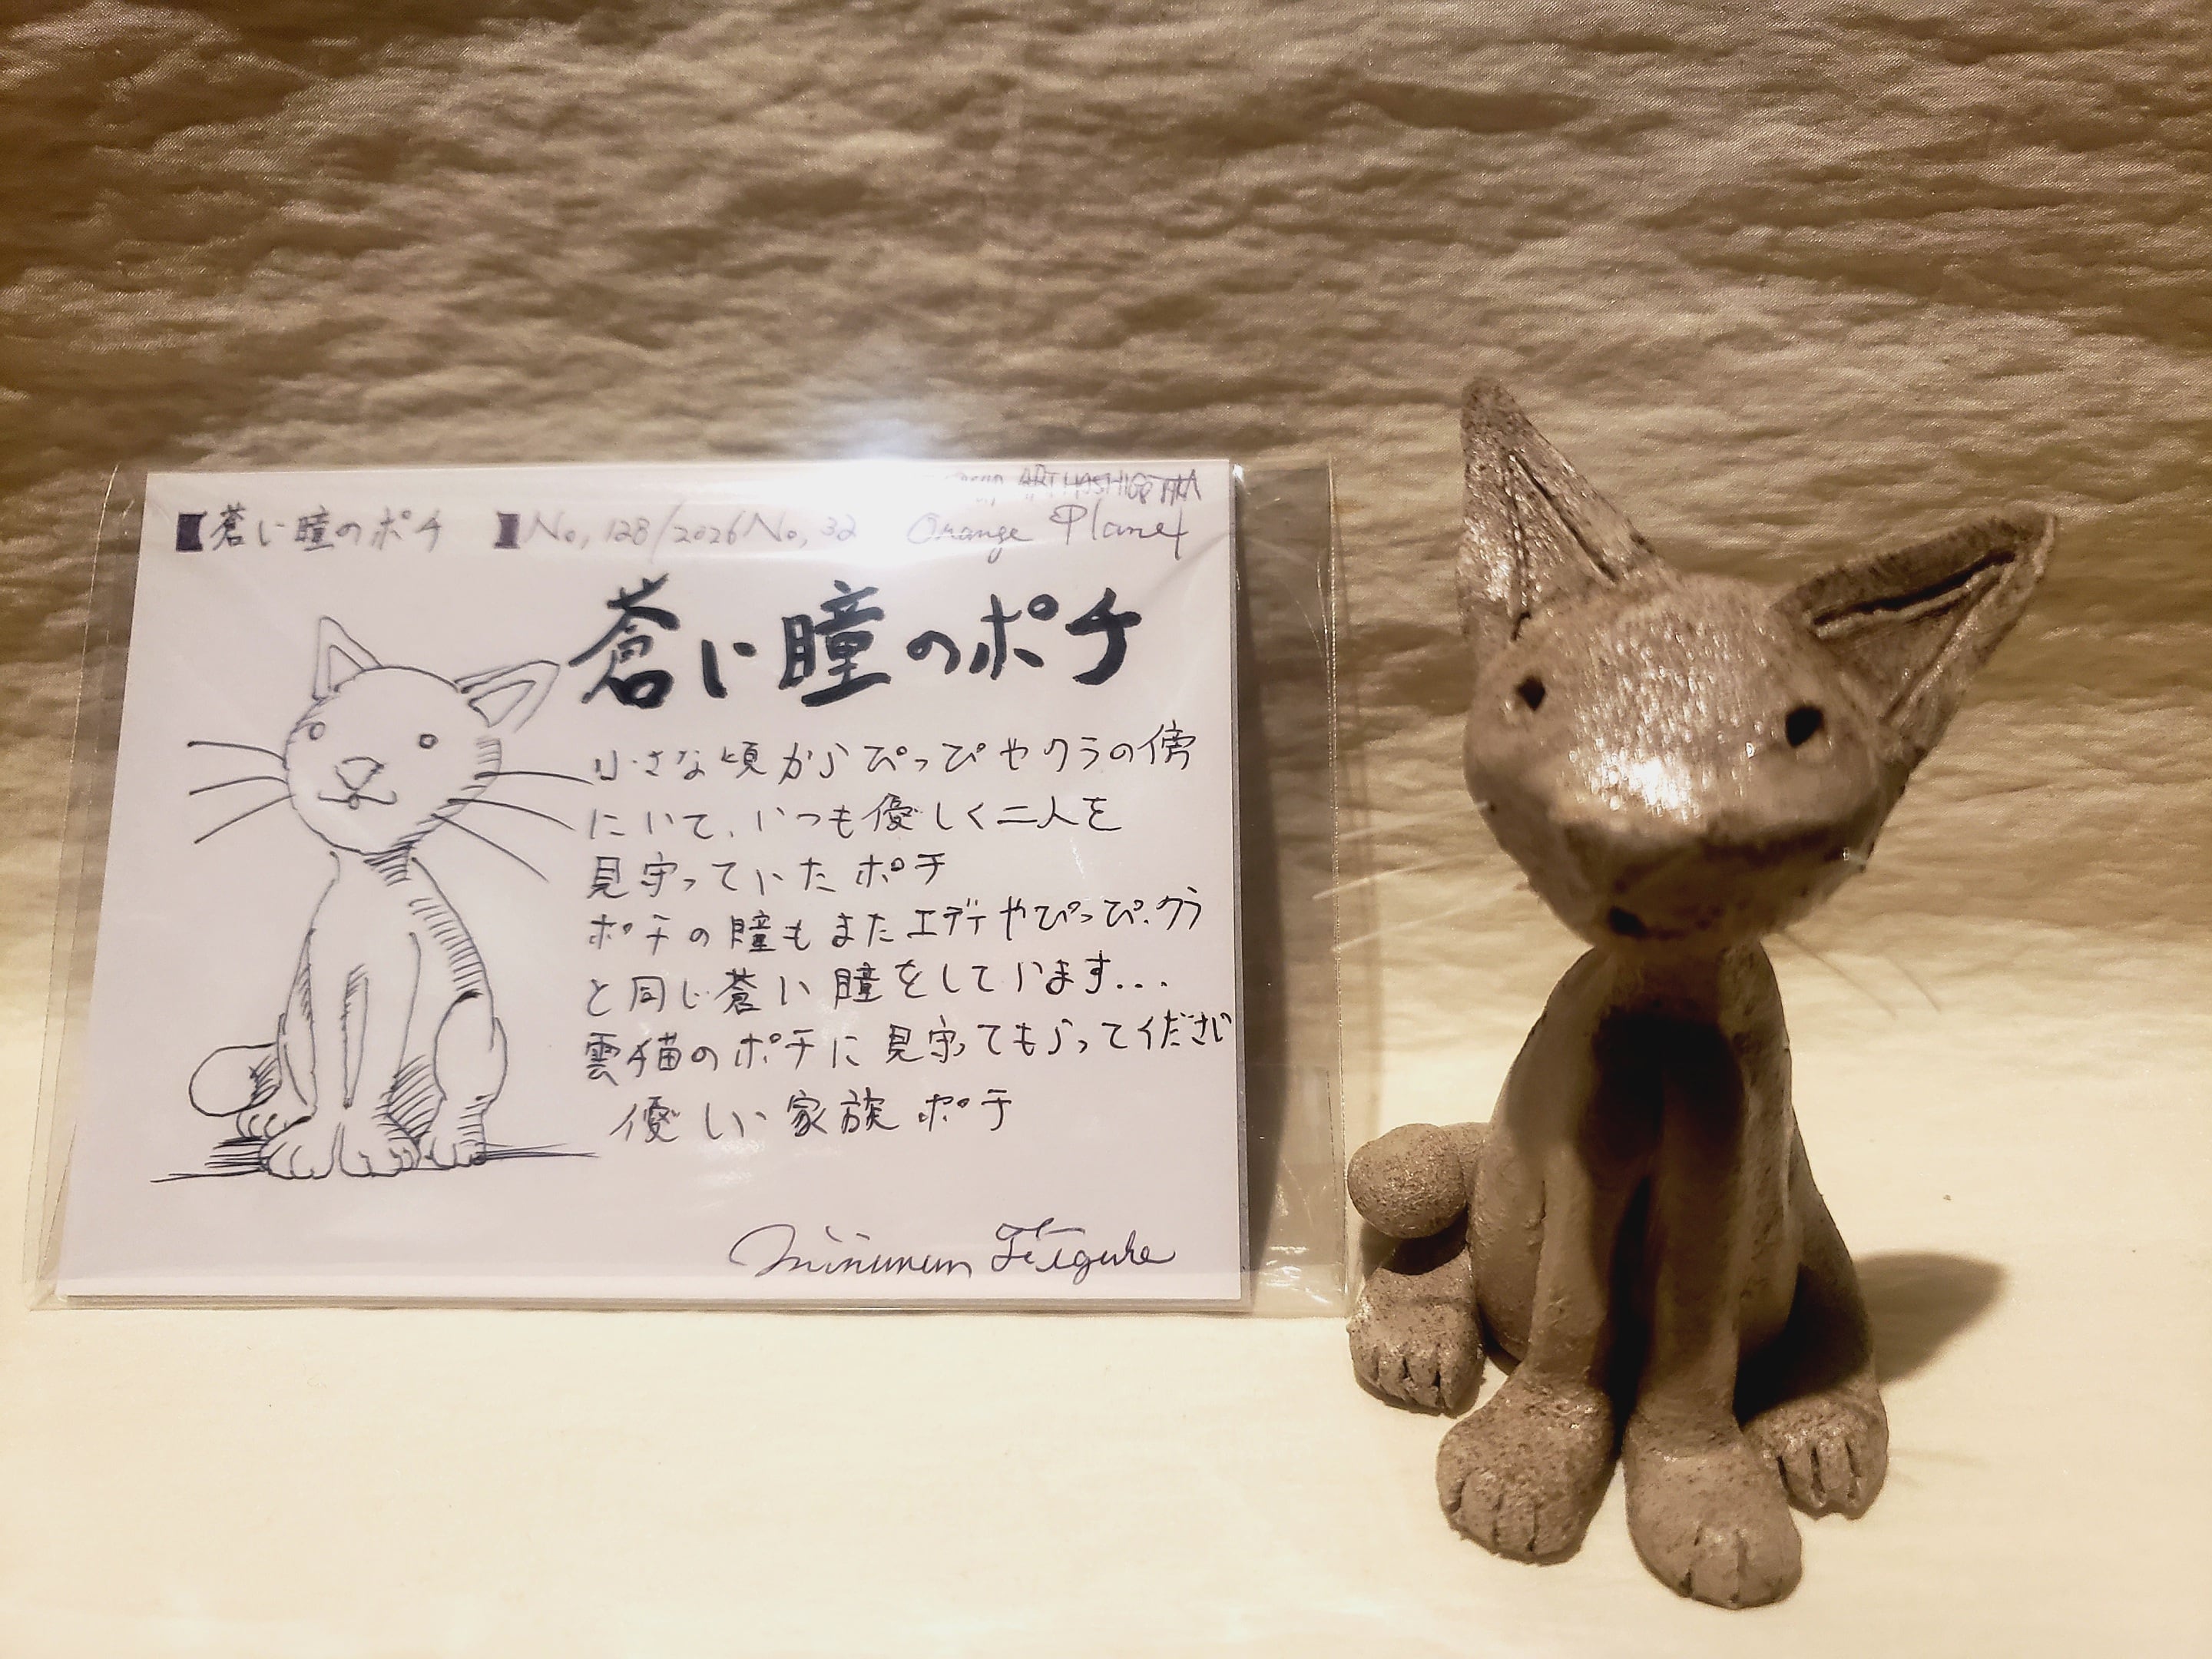 ART HOSHIGATAKA
【蒼い瞳のポチ 】No, 128/2026No, 32 Orange Planet
蒼い瞳のポチ
小さな頃からぴっぴやクラの傍
にいて、いつも優しく二人を
見守っていたポチ
ポチの瞳もまたエディやぴっぴ、クラ
と同じ蒼い瞳をしています...
雲猫のポチに見守ってもらってください
優しい家族ポチ
Minimum Figure